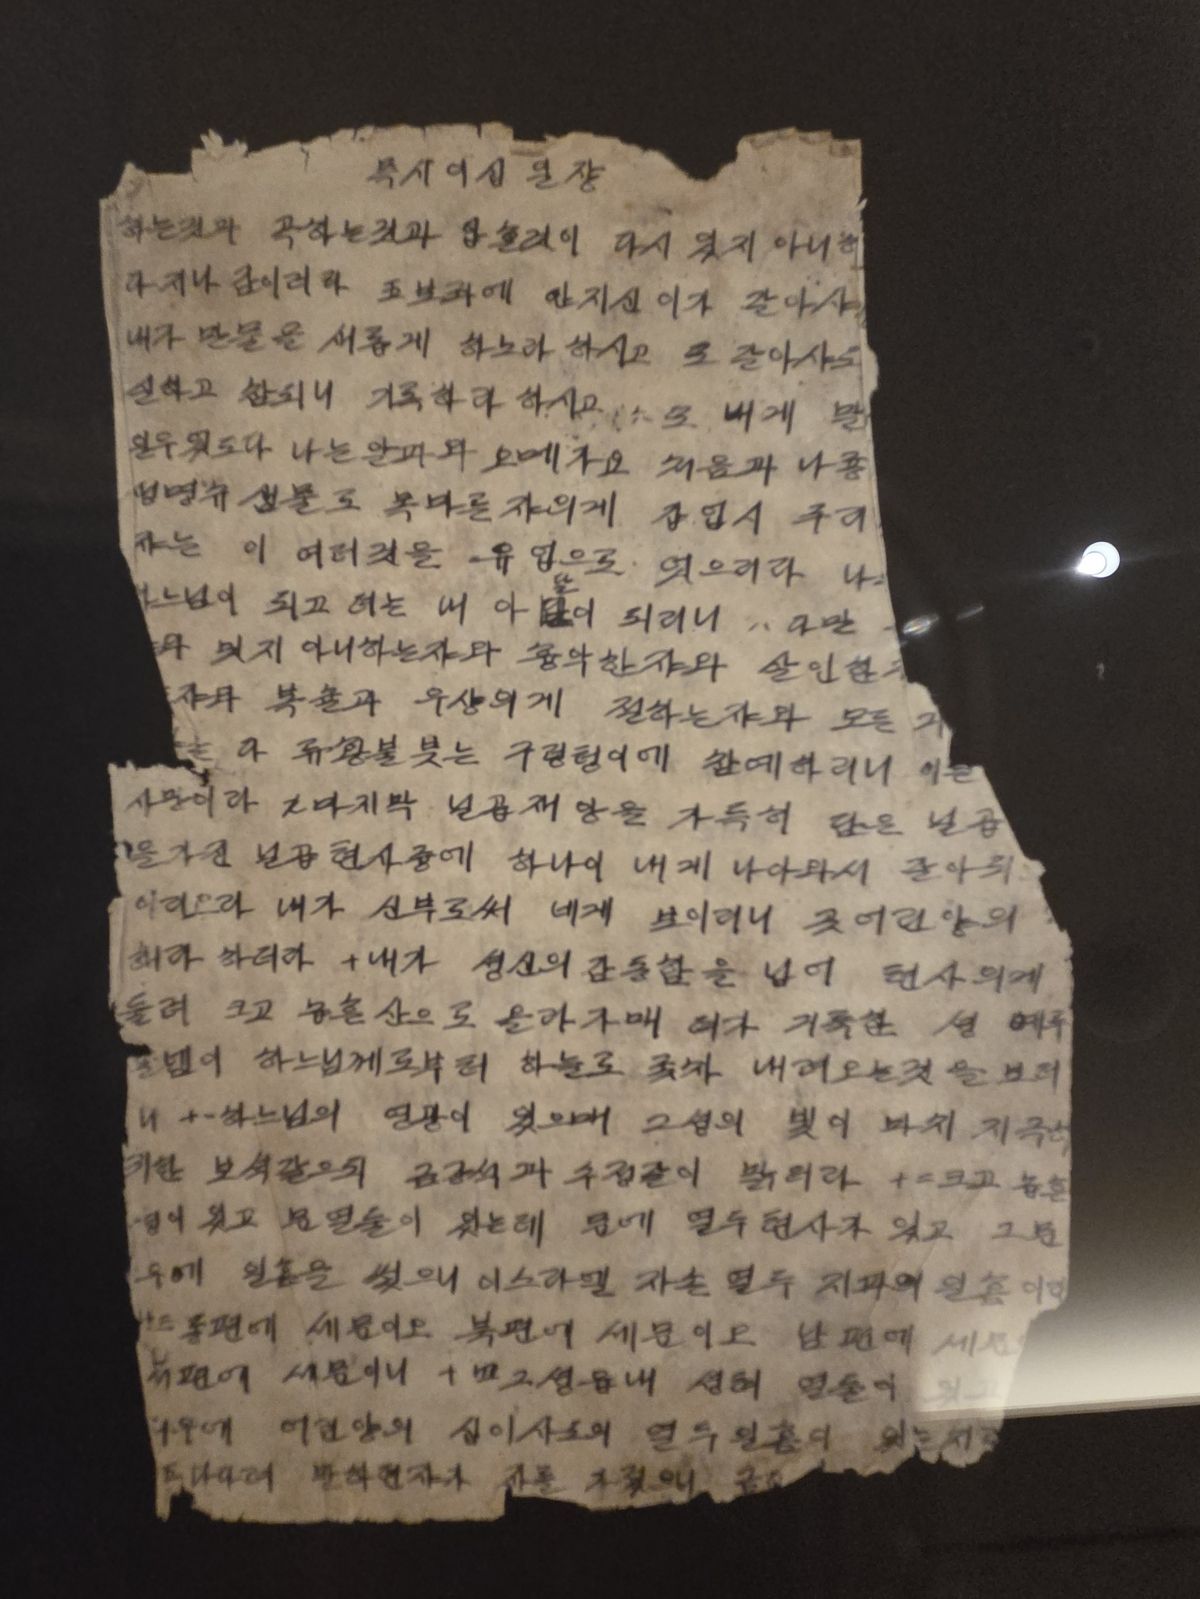 묵시이십일장
하는것과 곡하는것과 압흐미 다시 잇지 아니
라 지나 감이러라 보좌에 안지신이가 갈아사
내가 만물을 새롭게 하노라 하시고 또 갈아사
실하고 참되니 기록하라 하시고 또 내게 말
일우웟도다 나는 알파와 오메가요 처음과 나종
생물로 목마른쟈의게 갑업시 주리
쟈는 이 여러것을 유업으로 엇으리라 나
되고 더는 내 아들이 되려니 다만
밋지 아니하는쟈와 흉악한쟈와 살인한
쟈와 복슐과 우상의게 절하는쟈와 모든 거
라 류황불붓는 구렁텅이에 참예하리니 이는
사망이라 마지막 닐곱재앙을 가득히 담은 닐곱
을가진 닐곱텬사중에 하나이 내게 나아와서 갈아되
이리오라 내가 신부로써 네게 보이리니 곳어린양의
하더라 +내가 셩신의 감동함을 닙어 텬사의게
들려 크고 놉흔산으로 올라가매 뎌가 거룩한 셩 예루
살렘이 하느님께로부터 하늘로 좃차 내려오는것을 보려
니 +一하느님의 영광이 잇으매 그셩의 빛이 마치 지극
귀한 보석갈으되 금강석과 수정갈이 말ᄀ더라 +二크고 놉흔
셩이 잇고 문열둘이 잇는데 문에 열두텬사가 잇고 그문
우에 일흠을 썻으니 이스라엘 자손 열두 지파의 일흠이
동편에 세문이오 북편에 세문이오 남편에 세문
편에 세문이니 +四그셩읍내 셩터 열둘이 잇고
우에 어린양의 십이사도의 열두일흠이 잇는지라
말하던쟈가 자를 가졋으니 금